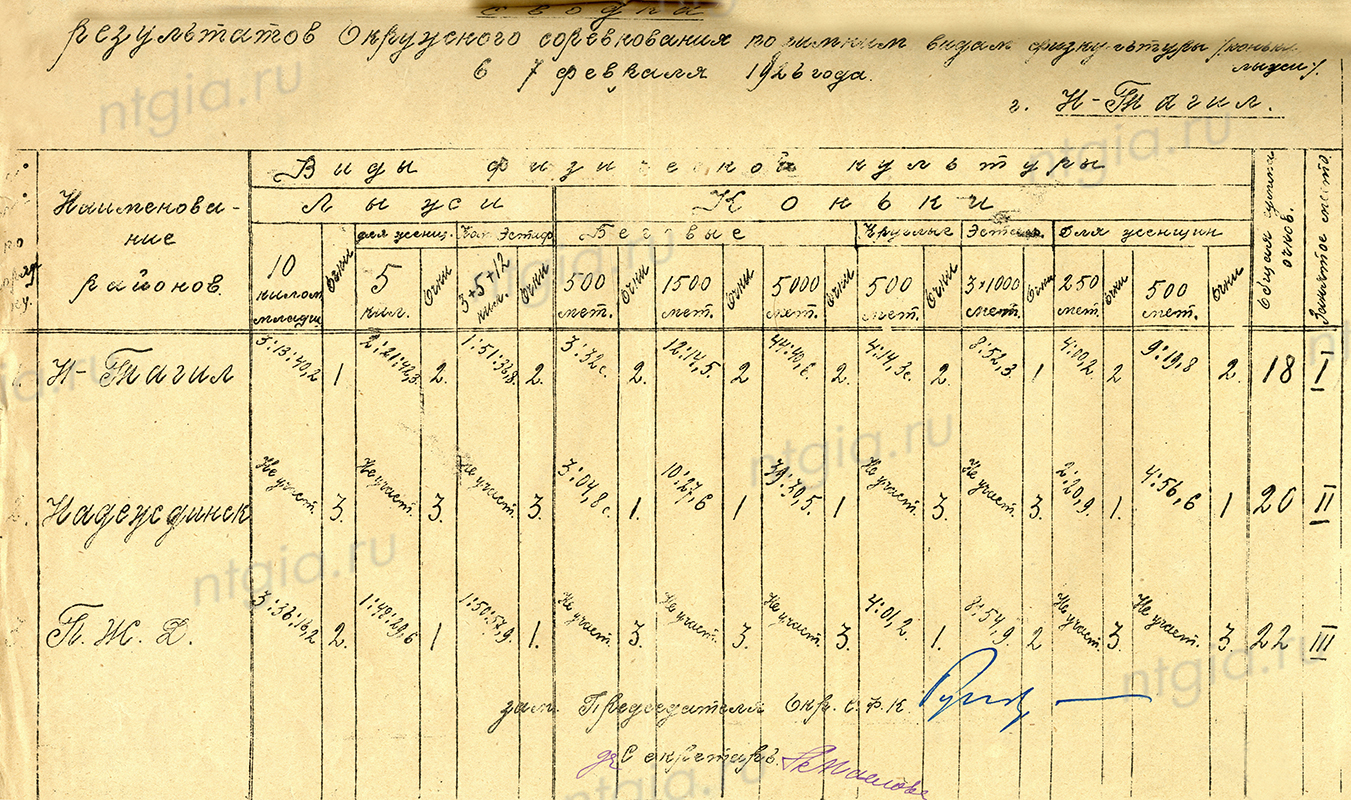 Сводка
результатов Окружного соревнования по зимним видам физкультуры /коньки
лыжи/.
6 7 февраля 1926 года.
г. Н-Тагил.
Виды физической культуры
Наименова-
ние
районов.
Лыжи
Коньки
Общая сумма очков.
Занятое место.
для женщ.
Эстаф.
Беговые
Круглые
Эстаф.
Для женщин
10 килом. младш.
Очки
5 кил.
Очки
3+5+12 кил.
Очки
500 мет.
Очки
1500 мет.
Очки
5000 мет.
Очки
500 мет.
Очки
3*1000 мет.
Очки
250 мет.
Очки
500 мет.
Очки
Н-Тагил 3:13:40,2 1 2:21:42,3 2. 1:51:38,8 2. 3:32с. 2. 12:14,5. 2 44:40,6. 2. 4:14,3с. 2. 8:52,3. 1 4:00,2. 2 9:19,8 2. 18 I
Надеждинск Не участ. 3. Не участ. 3. Не участ. 3. 3:04,8с. 1. 10:27,6 1 39:30,5. 1 Не участ. 3. Не участ. 3. 2:20,9. 1. 4:56,6 1 20 II
П.Ж.Д. 3:38:16,2 2. 1:40:29,6 1 1:50:57,9 1. Не участ. 3. Не участ. 3. Не участ. 3. 4:01,2. 1. 8:54,9. 2 Не участ. 3. Не участ. 3. 22 III
зам. Председателя Окр. С.Ф.К.
Секретарь
ntgia.ru
ntgia.ru
ntgia.ru
ntgia.ru
ntgia.ru
ntgia.ru